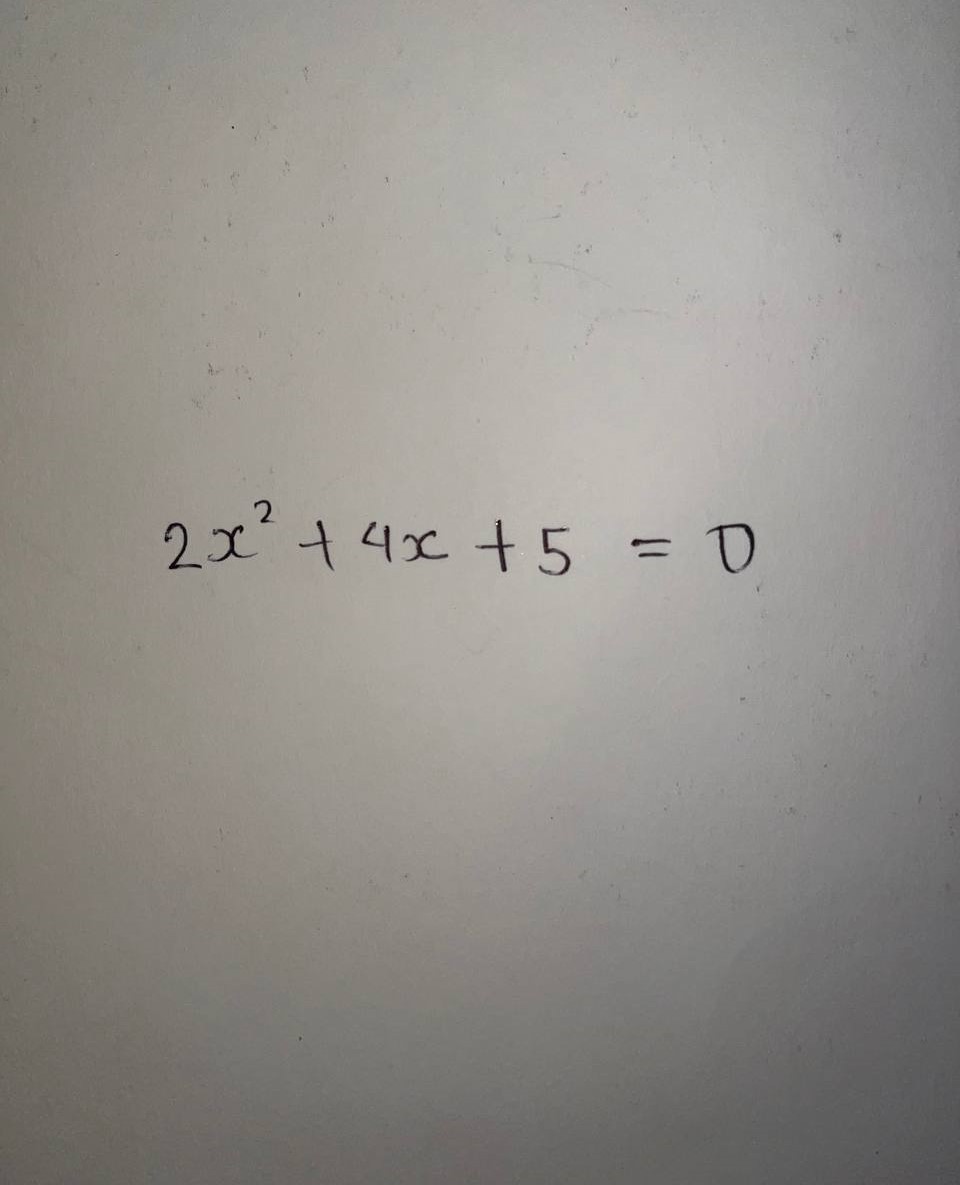 2x² + 4x + 5 = 0